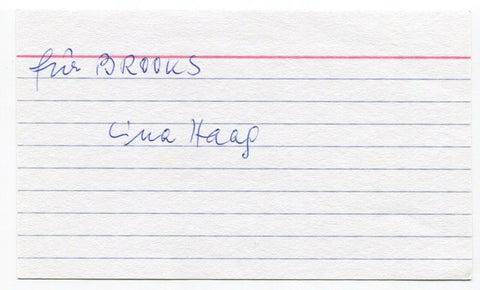 für BROOKS
Lina Haag